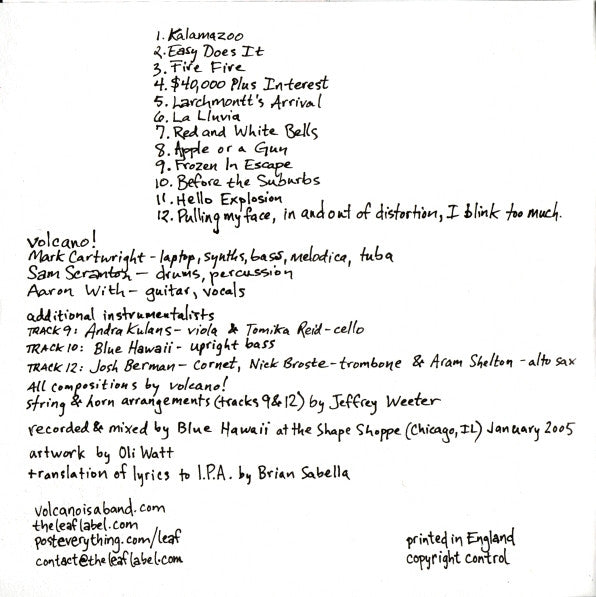 1. Kalamazoo
2. Easy Does It
3. Fire Fire
4. $40,000 Plus Interest
5. Larchmontt's Arrival
6. La Lluvia
7. Red and White Bells
8. Apple or a Gun
9. Frozen In Escape
10. Before the Suburbs
11. Hello Explosion
12. Pulling my face, in and out of distortion, I blink too much.
volcano!
Mark Cartwright - laptop, synths, bass, melodica, tuba
Sam Scranton - drums, percussion
Aaron With - guitar, vocals
additional instrumentalists
TRACK 9: Andra Kulans - viola & Tomika Reid - cello
TRACK 10: Blue Hawaii - upright bass
TRACK 12: Josh Berman - Cornet, Nick Broste - trombone & Aram Shelton - alto sax
All compositions by volcano!
string & horn arrangements (tracks 9 & 12) by Jeffrey Weeter
recorded & mixed by Blue Hawaii at the Shape Shoppe (Chicago, IL) January 2005
artwork by Oli Watt
translation of lyrics to I.P.A. by Brian Sabella
volcanoisaband.com
theleaflabel.com
posteverything.com/leaf
contact@theleaflabel.com
printed in England
copyright control